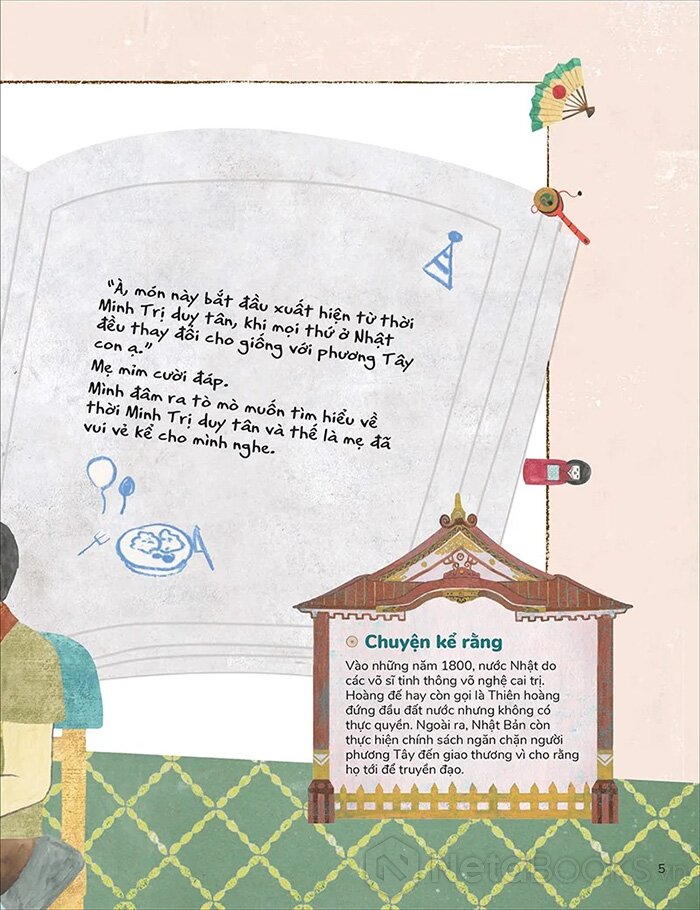 “À, món này bắt đầu xuất hiện từ thời
Minh Trị duy tân, khi mọi thứ ở Nhật
đều thay đổi cho giống với phương Tây
con ạ.”
Mẹ mỉm cười đáp.
Mình đâm ra tò mò muốn tìm hiểu về
thời Minh Trị duy tân và thế là mẹ đã
vui vẻ kể cho mình nghe.
Chuyện kể rằng
Vào những năm 1800, nước Nhật do
các võ sĩ tinh thông võ nghệ cai trị.
Hoàng đế hay còn gọi là Thiên hoàng
đứng đầu đất nước nhưng không có
thực quyền. Ngoài ra, Nhật Bản còn
thực hiện chính sách ngăn chặn người
phương Tây đến giao thương vì cho rằng
họ tới để truyền đạo.
NetaBooks.vn
5